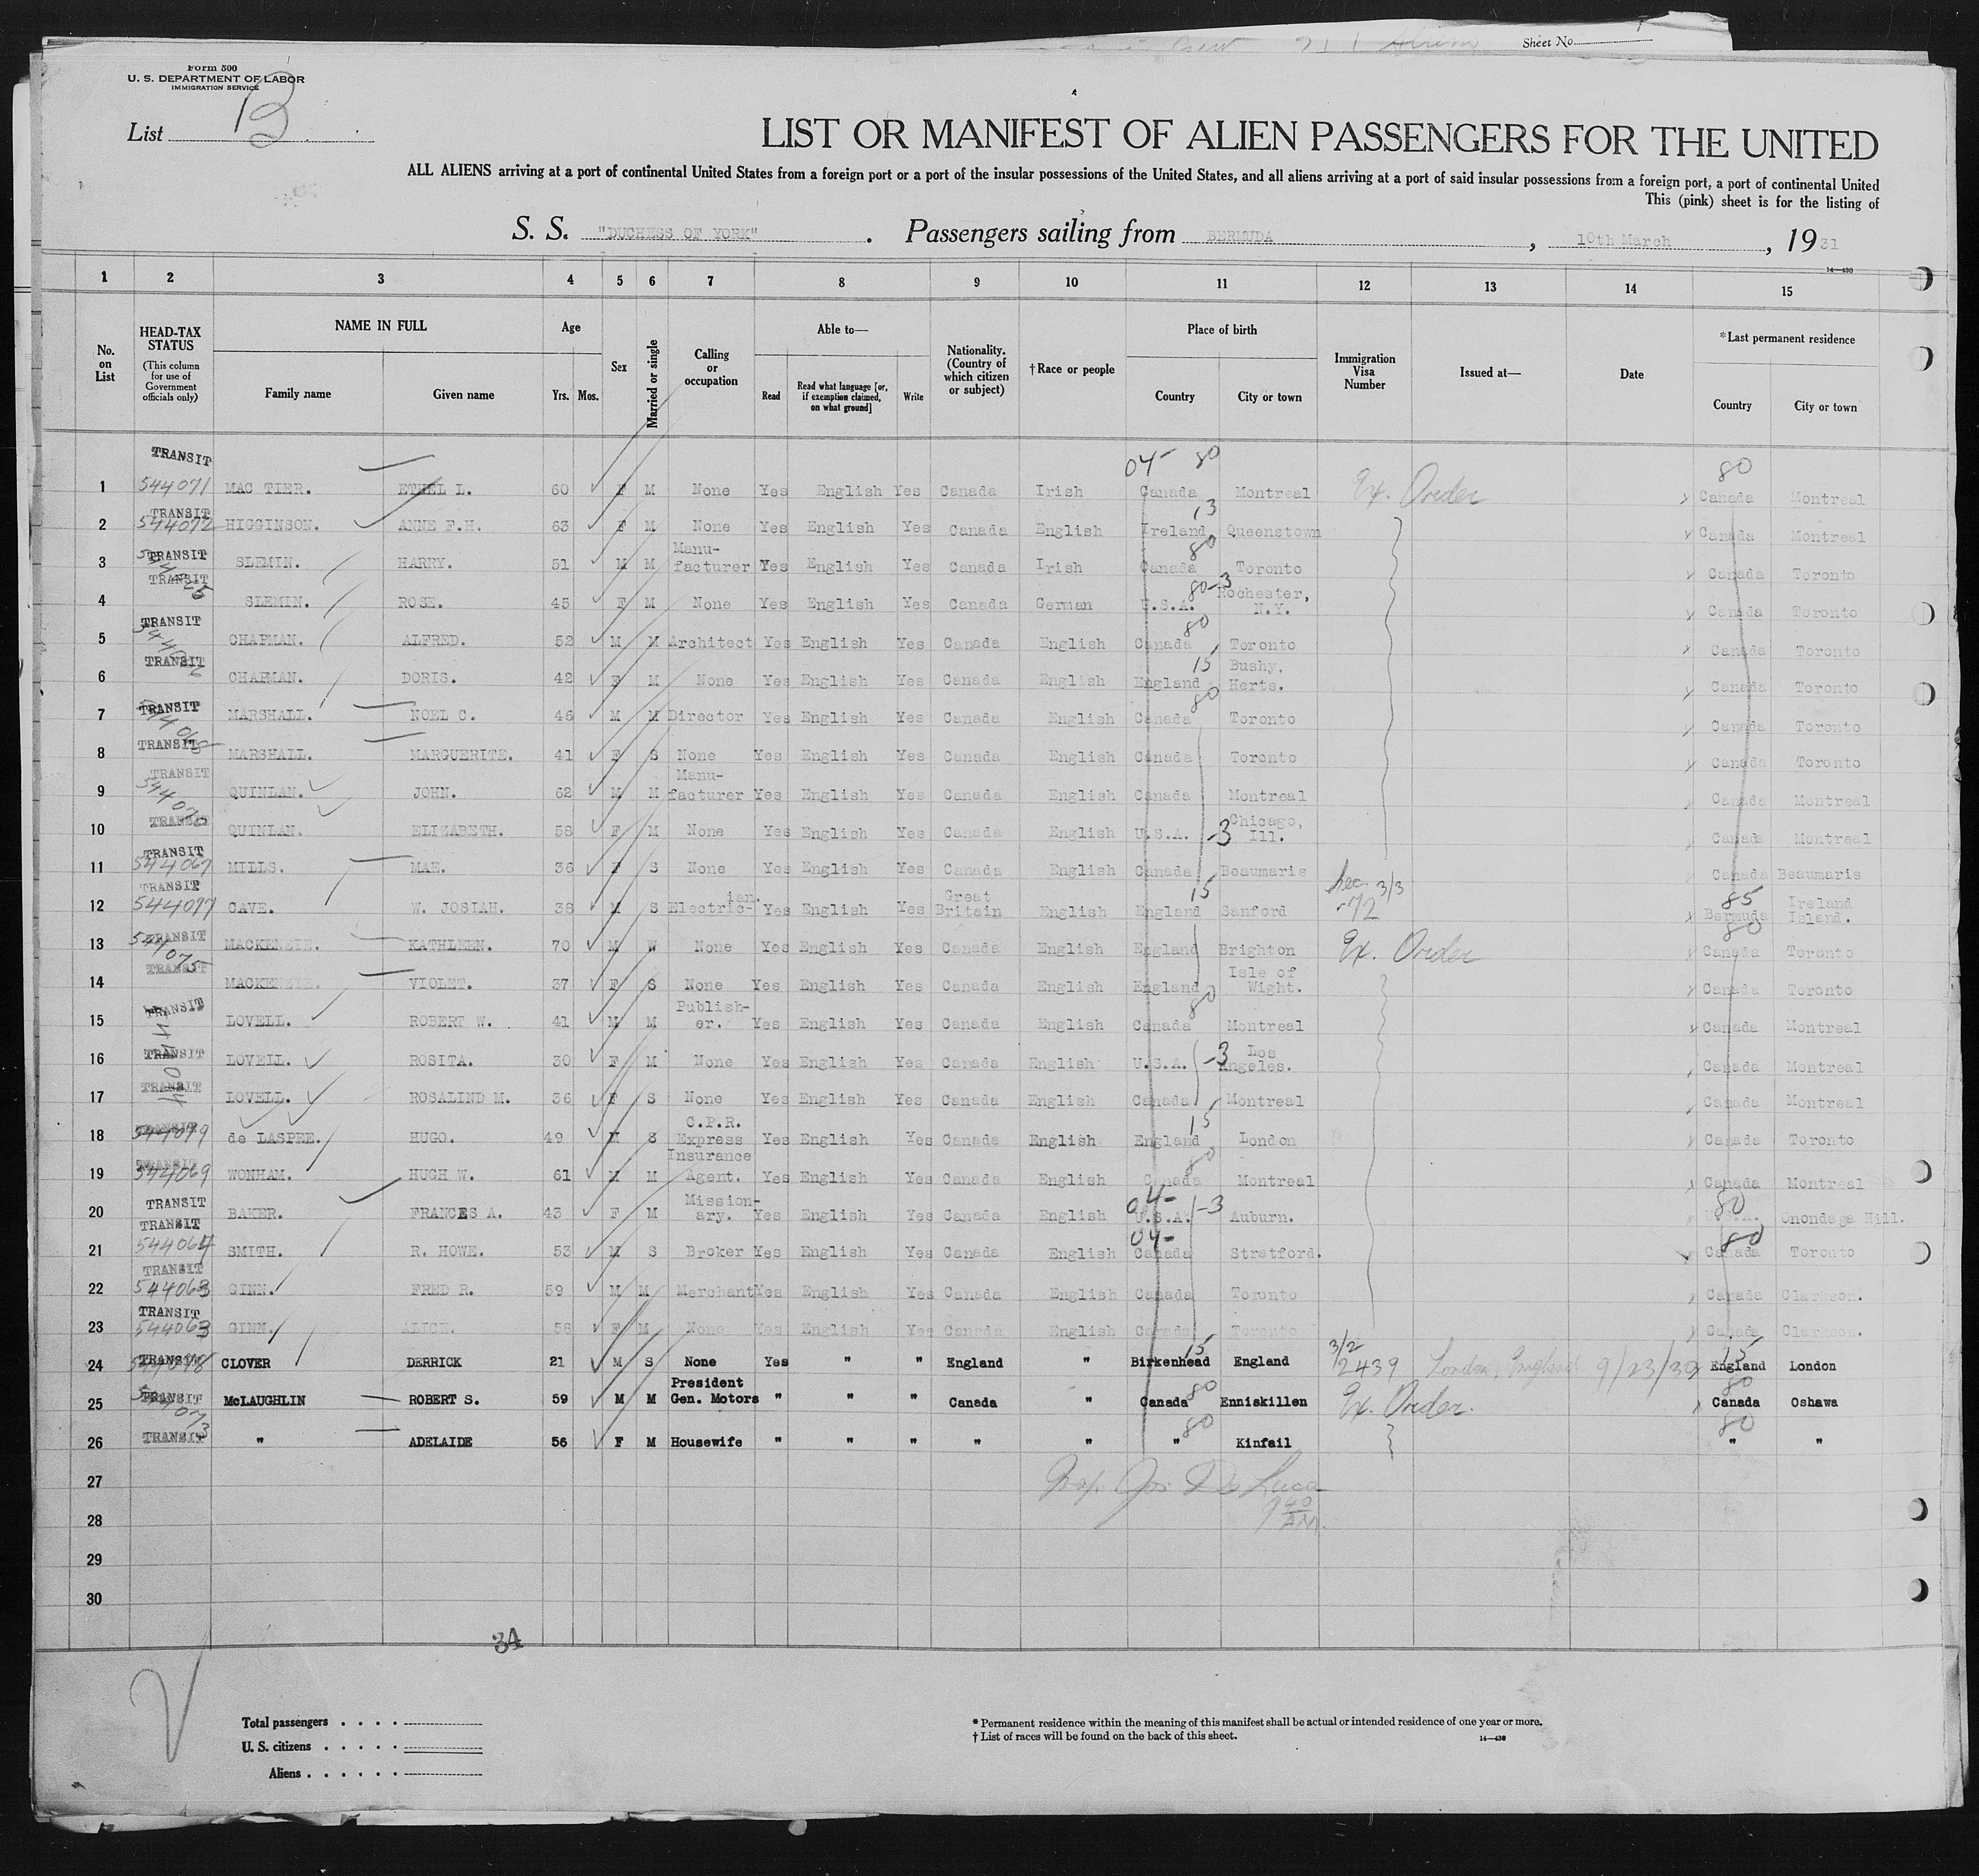 Sheet No.
Form 500
U. S. DEPARTMENT OF LABOR
IMMIGRATION SERVICE
List B
LIST OR MANIFEST OF ALIEN PASSENGERS FOR THE UNITED
ALL ALIENS arriving at a port of continental United States from a foreign port or a port of the insular possessions of the United States, and all aliens arriving at a port of said insular possessions from a foreign port, a port of continental United
This (pink) sheet is for the listing of
S. S. "DUCHESS OF YORK" . Passengers sailing from BERMUDA , 10th March , 19 31
14—430
1 2 3 4 5 6 7 8 9 10 11 12 13 14 15
No. on List HEAD-TAX STATUS (This column for use of Government officials only) NAME IN FULL Family name Given name Age Yrs. Mos. Sex Married or single Calling or occupation Able to— Read Read what language [or, if exemption claimed, on what ground] Write Nationality. (Country of which citizen or subject) †Race or people Place of birth Country City or town Immigration Visa Number Issued at— Date *Last permanent residence Country City or town
TRANSIT 04- 80 80
1 544071 MAC TIER. ETHEL L. 60 F M None Yes English Yes Canada Irish Canada Montreal Ex. Order Canada Montreal
2 TRANSIT 544072 HIGGINSON. ANNE F.H. 63 F M None Yes English Yes Canada English Ireland Queenstown Canada Montreal
3 TRANSIT SLEMIN. HARRY. 51 M M Manu-facturer Yes English Yes Canada Irish Canada 80 Toronto Canada Toronto
4 TRANSIT SLEMIN. ROSE. 45 F M None Yes English Yes Canada German U.S.A. 80-3 Rochester, N.Y. Canada Toronto
5 TRANSIT CHAPMAN. ALFRED. 52 M M Architect Yes English Yes Canada English Canada 80 Toronto Canada Toronto
6 TRANSIT CHAPMAN. DORIS. 42 F M None Yes English Yes Canada English England 15 Bushy, Herts. Canada Toronto
7 TRANSIT MARSHALL. NOEL C. 46 M M Director Yes English Yes Canada English Canada 80 Toronto Canada Toronto
8 TRANSIT MARSHALL. MARGUERITE. 41 F S None Yes English Yes Canada English Canada Toronto Canada Toronto
9 TRANSIT QUINLAN. JOHN. 62 M M Manu-facturer Yes English Yes Canada English Canada Montreal Canada Montreal
10 TRANSIT QUINLAN. ELIZABETH. 58 F M None Yes English Yes Canada English U.S.A. -3 Chicago, Ill. Canada Montreal
11 TRANSIT 544067 MILLS. MAE. 36 F S None Yes English Yes Canada English Canada Beaumaris Canada Beaumaris
12 TRANSIT 544077 CAVE. W. JOSIAH. 38 M S Electric-ian. Yes English Yes Great Britain English England 15 Sanford Sec. 3/3 -72 85 Bermuda Ireland Island.
13 TRANSIT MACKENZIE. KATHLEEN. 70 M W None Yes English Yes Canada English England Brighton Ex. Order 80 Canada Toronto
14 TRANSIT MACKENZIE. VIOLET. 37 F S None Yes English Yes Canada English England Isle of Wight. Canada Toronto
15 TRANSIT LOVELL. ROBERT W. 41 M M Publish-er. Yes English Yes Canada English Canada 80 Montreal Canada Montreal
16 TRANSIT LOVELL. ROSITA. 30 F M None Yes English Yes Canada English U.S.A. -3 Los Angeles. Canada Montreal
17 TRANSIT LOVELL. ROSALIND M. 36 F S None Yes English Yes Canada English Canada Montreal Canada Montreal
18 TRANSIT 544079 de LASPEE. HUGO. 49 M S C.P.R. Express Yes English Yes Canada English England 15 London Canada Toronto
19 TRANSIT 544069 WONHAM. HUGH W. 61 M M Insurance Agent. Yes English Yes Canada English Canada 80 Montreal Canada Montreal
20 TRANSIT BAKER. FRANCES A. 43 F M Mission-ary. Yes English Yes Canada English 04- U.S.A. -3 Auburn. 80 U.S.A. Onondaga Hill.
21 TRANSIT 544064 SMITH. R. HOWE. 53 M S Broker Yes English Yes Canada English 04- Canada Stratford. 80 Canada Toronto
22 TRANSIT 544063 GINN. FRED R. 59 M M Merchant Yes English Yes Canada English Canada Toronto Canada Clarkson.
23 TRANSIT 544063 GINN. ALICE. 58 F M None Yes English Yes Canada English Canada Toronto Canada Clarkson.
24 TRANSIT 544078 CLOVER DERRICK 21 M S None Yes " " England " Birkenhead 15 England 3/2 2439 London, England 9/23/30 15 England London
25 TRANSIT McLAUGHLIN ROBERT S. 59 M M President Gen. Motors " " " Canada " Canada 80 Enniskillen Ex. Order. 80 Canada Oshawa
26 TRANSIT " ADELAIDE 56 F M Housewife " " " " " " 80 Kinfail 80 " "
27 Insp. Jos. De Luca
28 9 40 AM.
29
30
34
Total passengers . . . .
U. S. citizens . . . . .
Aliens . . . . . .
* Permanent residence within the meaning of this manifest shall be actual or intended residence of one year or more.
† List of races will be found on the back of this sheet. 14—430